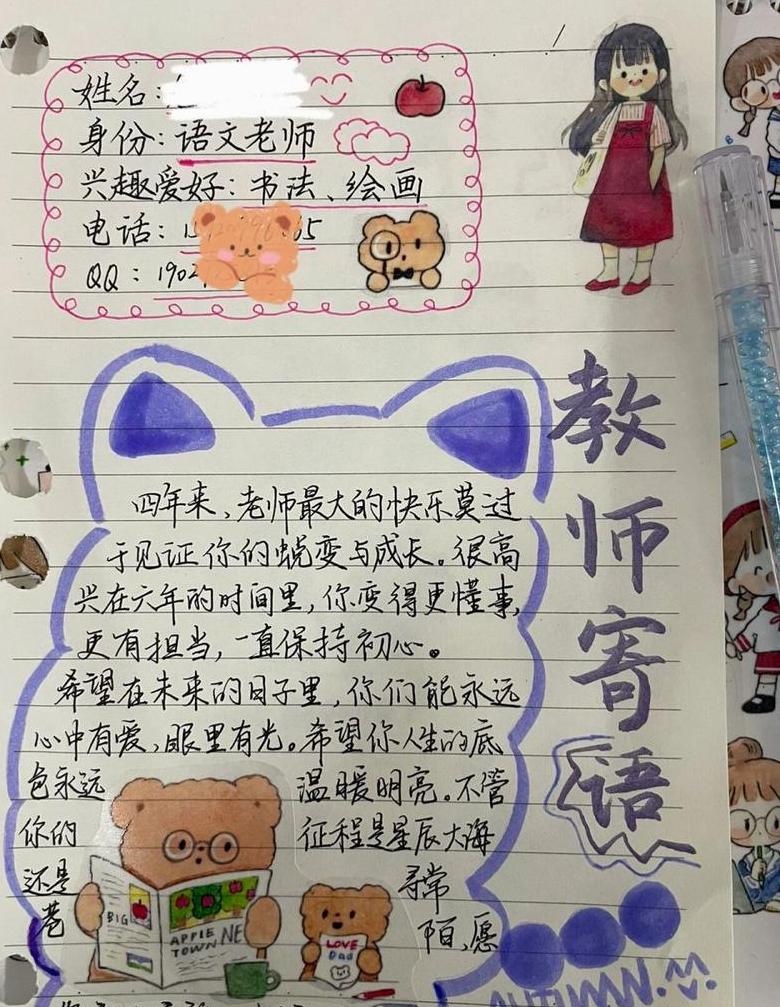 姓名:
身份:语文老师
兴趣爱好:书法、绘画
电话:
QQ:1902
教师寄语
四年来、老师最大的快乐莫过
于见证你的蜕变与成长。很高
兴在六年的时间里,你变得更懂事,
更有担当,一直保持初心。
希望在未来的日子里,你们能永远
心中有爱,眼里有光。希望你人生的底
色永远 温暖明亮。不管
你的 征程是星辰大海
还是 寻常
巷 陌,愿
BIG
APPLE
TOWN NE
LOVE
DAD
AUTUMN.